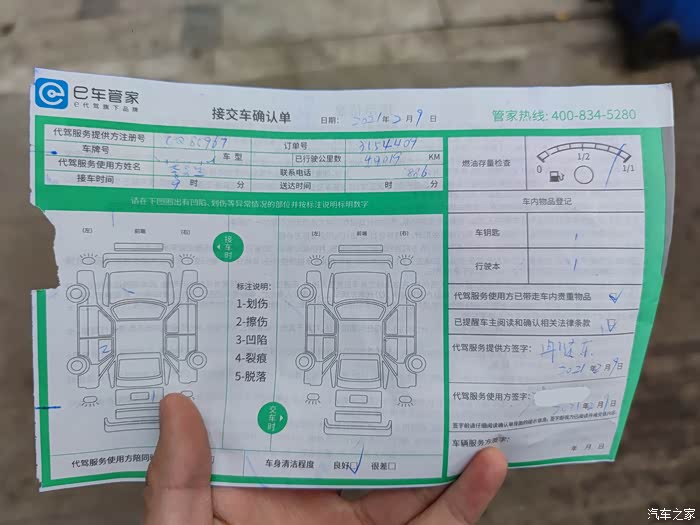 e车管家
e代驾旗下品牌
接交车确认单
日期: 2021年2月9日
管家热线: 400-834-5280
代驾服务提供方注册号
订单号
3154409
车牌号
车型
已行驶公里数
49017 KM
代驾服务使用方姓名
联系电话
886
接车时间 9 时 分
送达时间 时 分
燃油存量检查
0 1/2 1/1
请在下图圈出有凹陷、划伤等异常情况的部位并按标注说明标明数字
车内物品登记
车钥匙 1
行驶本 1
(左) 前端 (右)
接车时
(左) 前端 (右)
标注说明:
1-划伤
2-擦伤
3-凹陷
4-裂痕
5-脱落
2
1
交车时
代驾服务使用方已带走车内贵重物品
已提醒车主阅读和确认相关法律条款
代驾服务提供方签字:
2021年2月9日
代驾服务使用方签字:
车辆服务方签字:
年 月 日
代驾服务使用方陪同
车身清洁程度 良好 很差
汽车之家